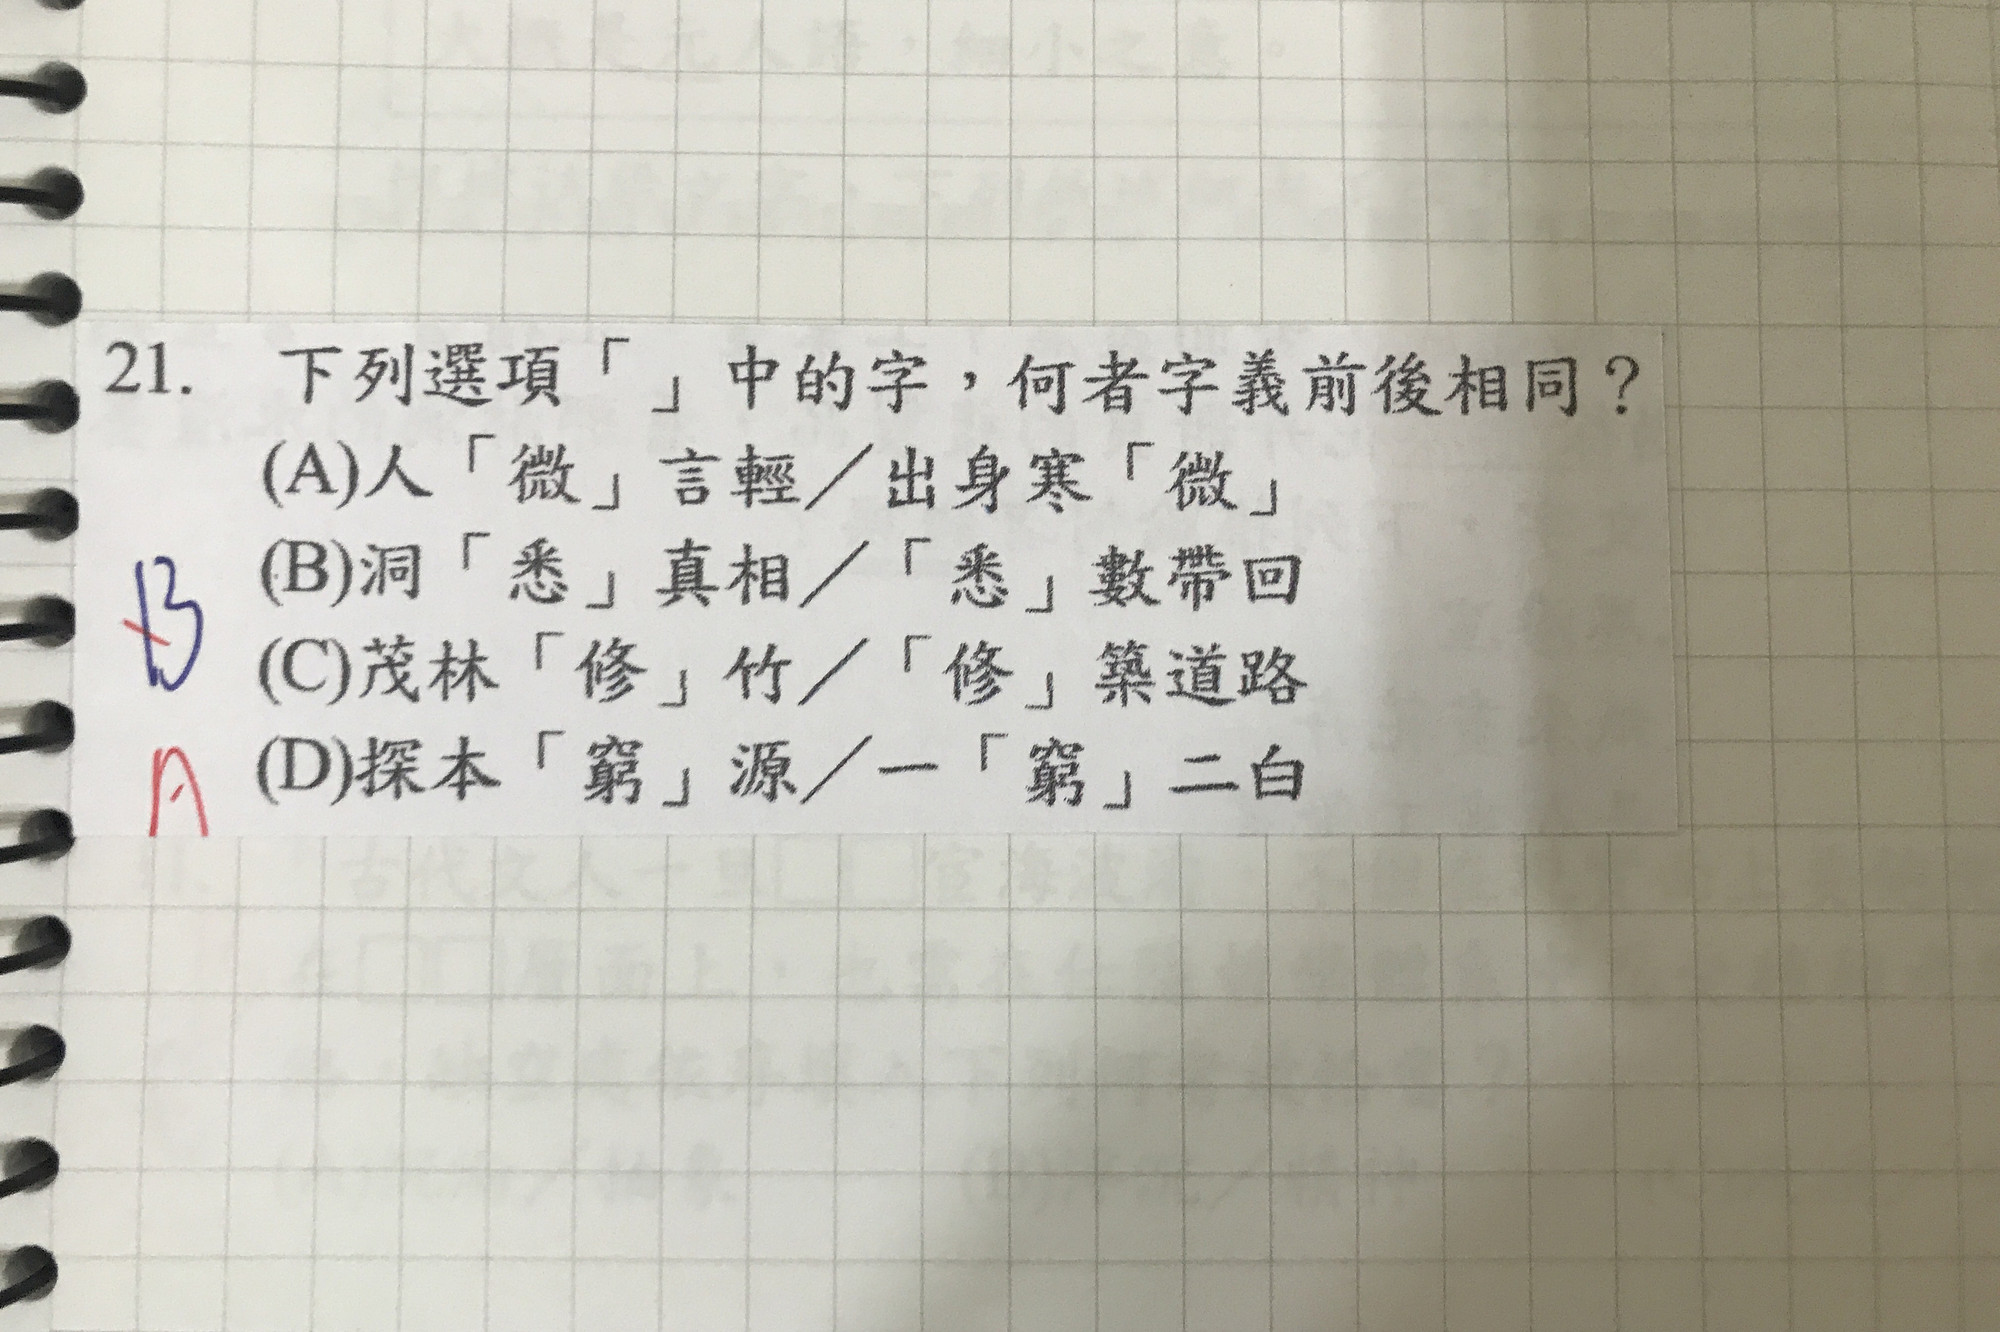 21. 下列選項「 」中的字，何者字義前後相同？
(A)人「微」言輕／出身寒「微」
(B)洞「悉」真相／「悉」數帶回
(C)茂林「修」竹／「修」築道路
(D)探本「窮」源／一「窮」二白
B
A